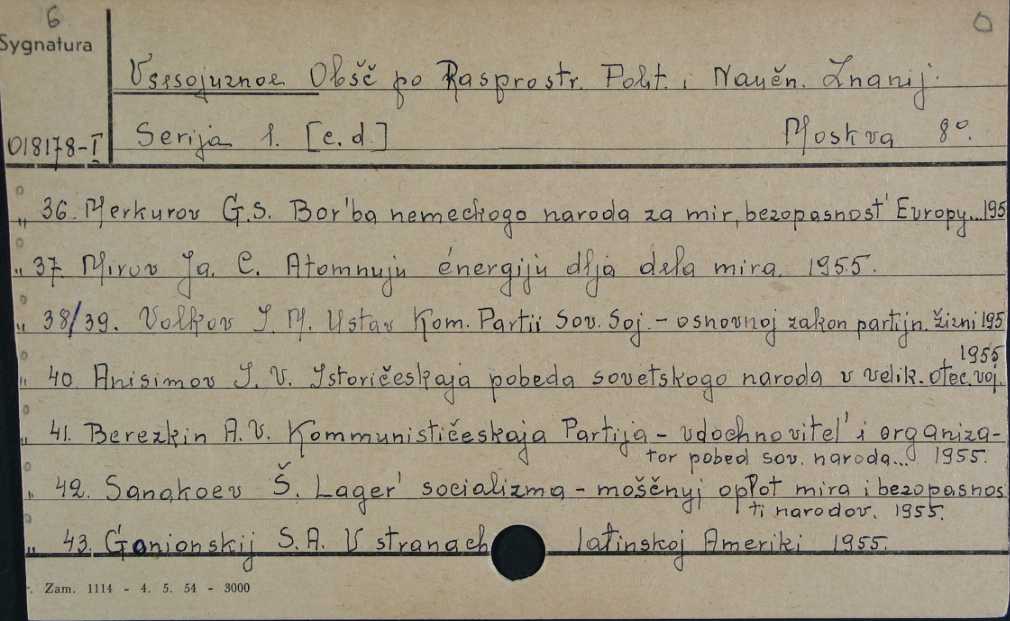 6
Sygnatura
Vsesojuznoe Obšč po Rasprostr. Polit. i Naučn. Znanij.
018178-I Serija 1. [c.d.] Moskva 8°.
„ 36. Merkurov G.S. Bor'ba nemeckogo naroda za mir, bezopasnost' Evropy...195
„ 37. Mirov Ja. C. Atomnuju énergiju dlja dela mira. 1955.
„ 38/39. Volkov I. M. Ustav Kom. Partii Sov. Soj. - osnovnoj zakon partijn. žizni 195
1955
„ 40. Anisimov I. V. Istoričeskaja pobeda sovetskogo naroda v velik. otec. voj.
„ 41. Berezkin A.V. Kommunističeskaja Partija - vdochnovitel' i organiza-
tor pobed sov. naroda... 1955.
„ 42. Sanakoev Š. Lager' socializma - moščnyj opłot mira i bezopasnos
ti narodov. 1955.
„ 43. Gonionskij S.A. V stranach latinskoj Ameriki 1955.
Zam. 1114 - 4. 5. 54 - 3000